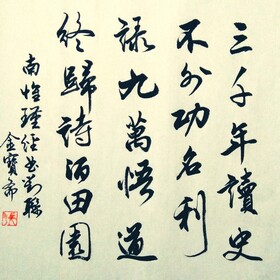 三千年讀史
不外功名利
祿九萬悟道
終歸詩酒田園
南怀瑾经典对联
金寶希